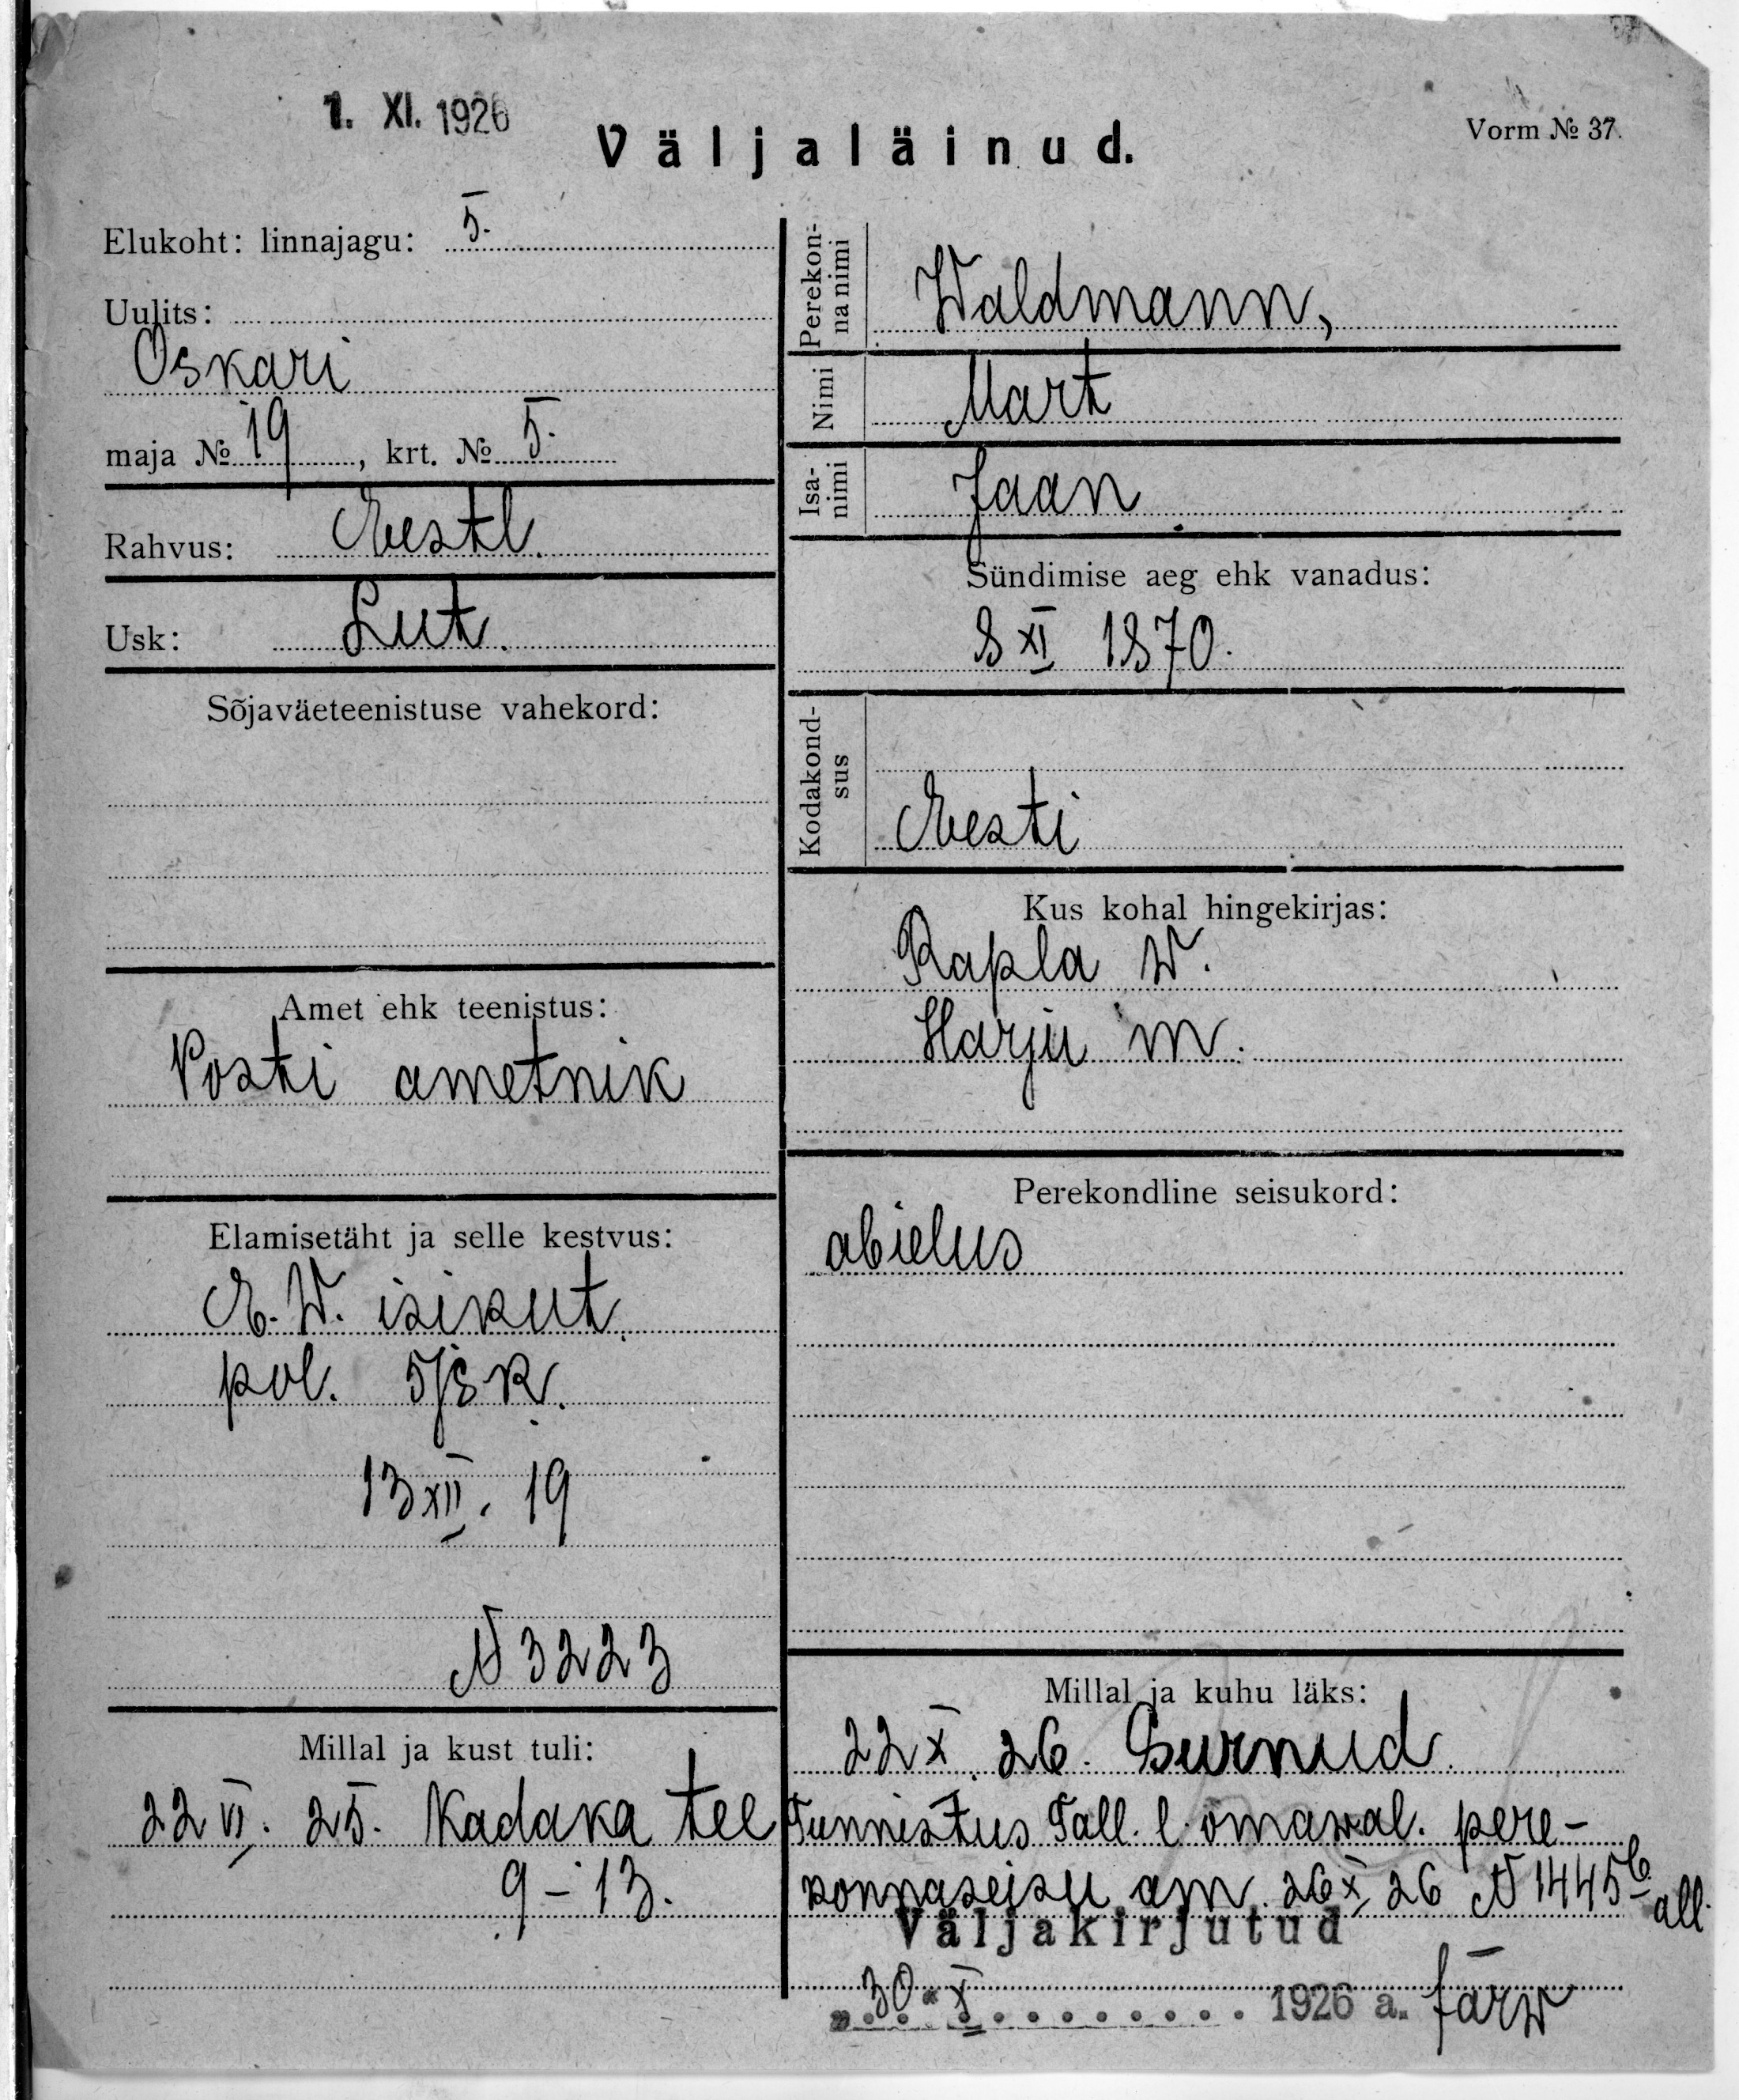 1. XI. 1926
Väljaläinud.
Vorm № 37.
Elukoht: linnajagu: 5.
Uulits:
Oskari
maja № 19, krt. № 5.
Rahvus: Eestl.
Usk: Lut.
Sõjaväeteenistuse vahekord:
Amet ehk teenistus:
Posti ametnik
Elamisetäht ja selle kestvus:
E. W. isikut.
pol. 5/j k.
13 XII. 19
N 3223
Millal ja kust tuli:
22 VI. 25. Kadaka tee
9-13.
Perekonna nimi
Waldmann,
Nimi
Mart
Isanimi
Jaan
Sündimise aeg ehk vanadus:
8 XI 1870.
Kodakondsus
Eesti
Kus kohal hingekirjas:
Rapla w.
Harju m.
Perekondline seisukord:
abielus
Millal ja kuhu läks:
22 X. 26. Surnud.
Tunnistus Tall. l. omawal. pere-
konnaseisu am. 26 X 26 N 1445 b. all.
Väljakirjutud
"30" X 1926 a. Järw